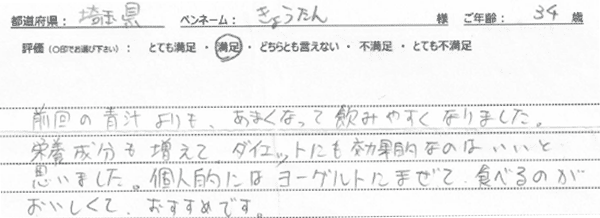 都道府県： 埼玉県 ペンネーム： きょうたん 様 ご年齢： 34 歳
評価（○印でお選び下さい）： とても満足 ・ 満足 ・ どちらとも言えない ・ 不満足 ・ とても不満足
前回の青汁よりも、あまくなって飲みやすくなりました。
栄養成分も増えて、ダイエットにも効果的なのはいいと
思いました。個人的にはヨーグルトにまぜて、食べるのが
おいしくて、おすすめです。